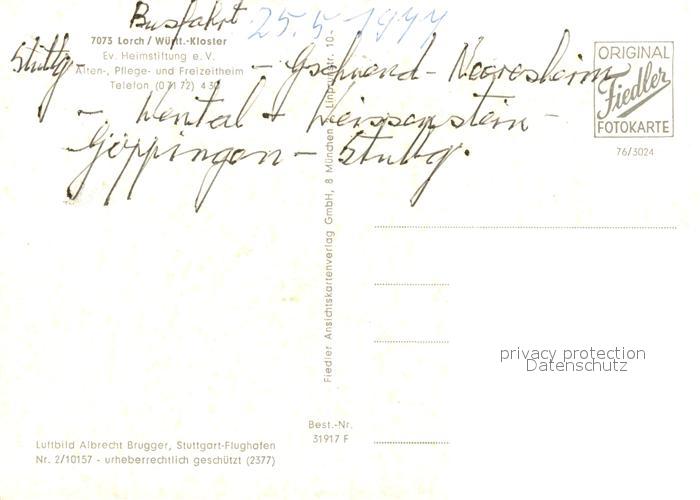 Busfahrt 25.5.1977
7073 Lorch / Württ.-Kloster
Ev. Heimstiftung e. V.
Alten-, Pflege- und Freizeitheim
Telefon (07172) 430
Stuttg. - Gschwend - Neresheim
- Wental + Weissenstein -
Göppingen - Stuttg.
ORIGINAL
Fiedler
FOTOKARTE
76/3024
Fiedler Ansichtskartenverlag GmbH, 8 München
privacy protection
Datenschutz
Best.-Nr.
31917 F
Luftbild Albrecht Brugger, Stuttgart-Flughafen
Nr. 2/10157 - urheberrechtlich geschützt (2377)